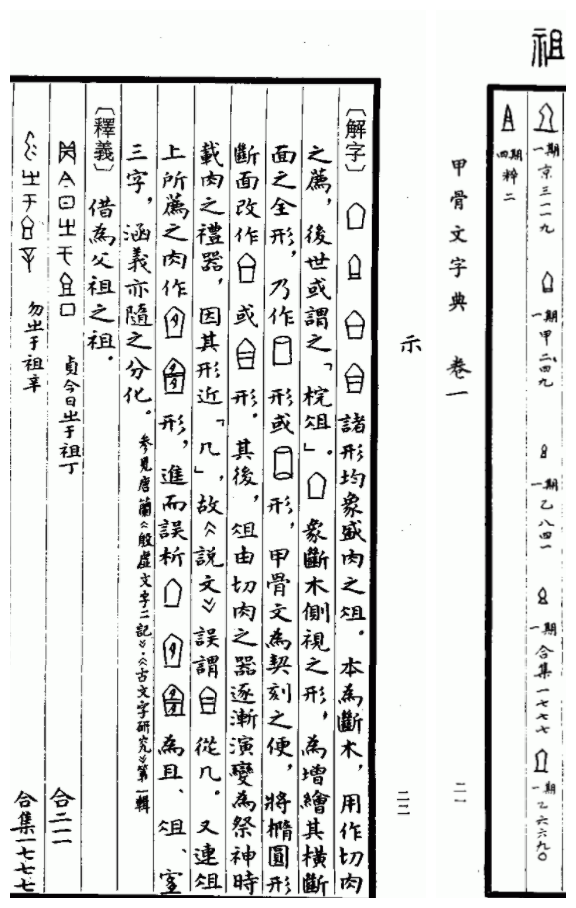 祖
一期 京三一一九 一期 甲二〇四九 一期 乙八四一 一期 合集一七七七 一期 乙六六九〇
四期 粹二
甲骨文字典 卷一 二一
示 二二
〔解字〕 諸形均象盛肉之俎。本為斷木,用作切肉
之薦,後世或謂之「梡俎」。 象斷木側視之形,為增繪其橫斷
面之全形,乃作 形或 形,甲骨文為契刻之便,將橢圓形
斷面改作 或 形。其後,俎由切肉之器逐漸演變為祭神時
載肉之禮器,因其形近「几」,故《說文》誤謂 從几。又連俎
上所薦之肉作 形,進而誤析 為且、俎、宜
三字,涵義亦隨之分化。參見唐蘭《殷虛文字二記》·《古文字研究》第一輯
〔釋義〕借為父祖之祖。
貞今日㞢于祖丁 合二一一
勿㞢于祖辛 合集一七七七